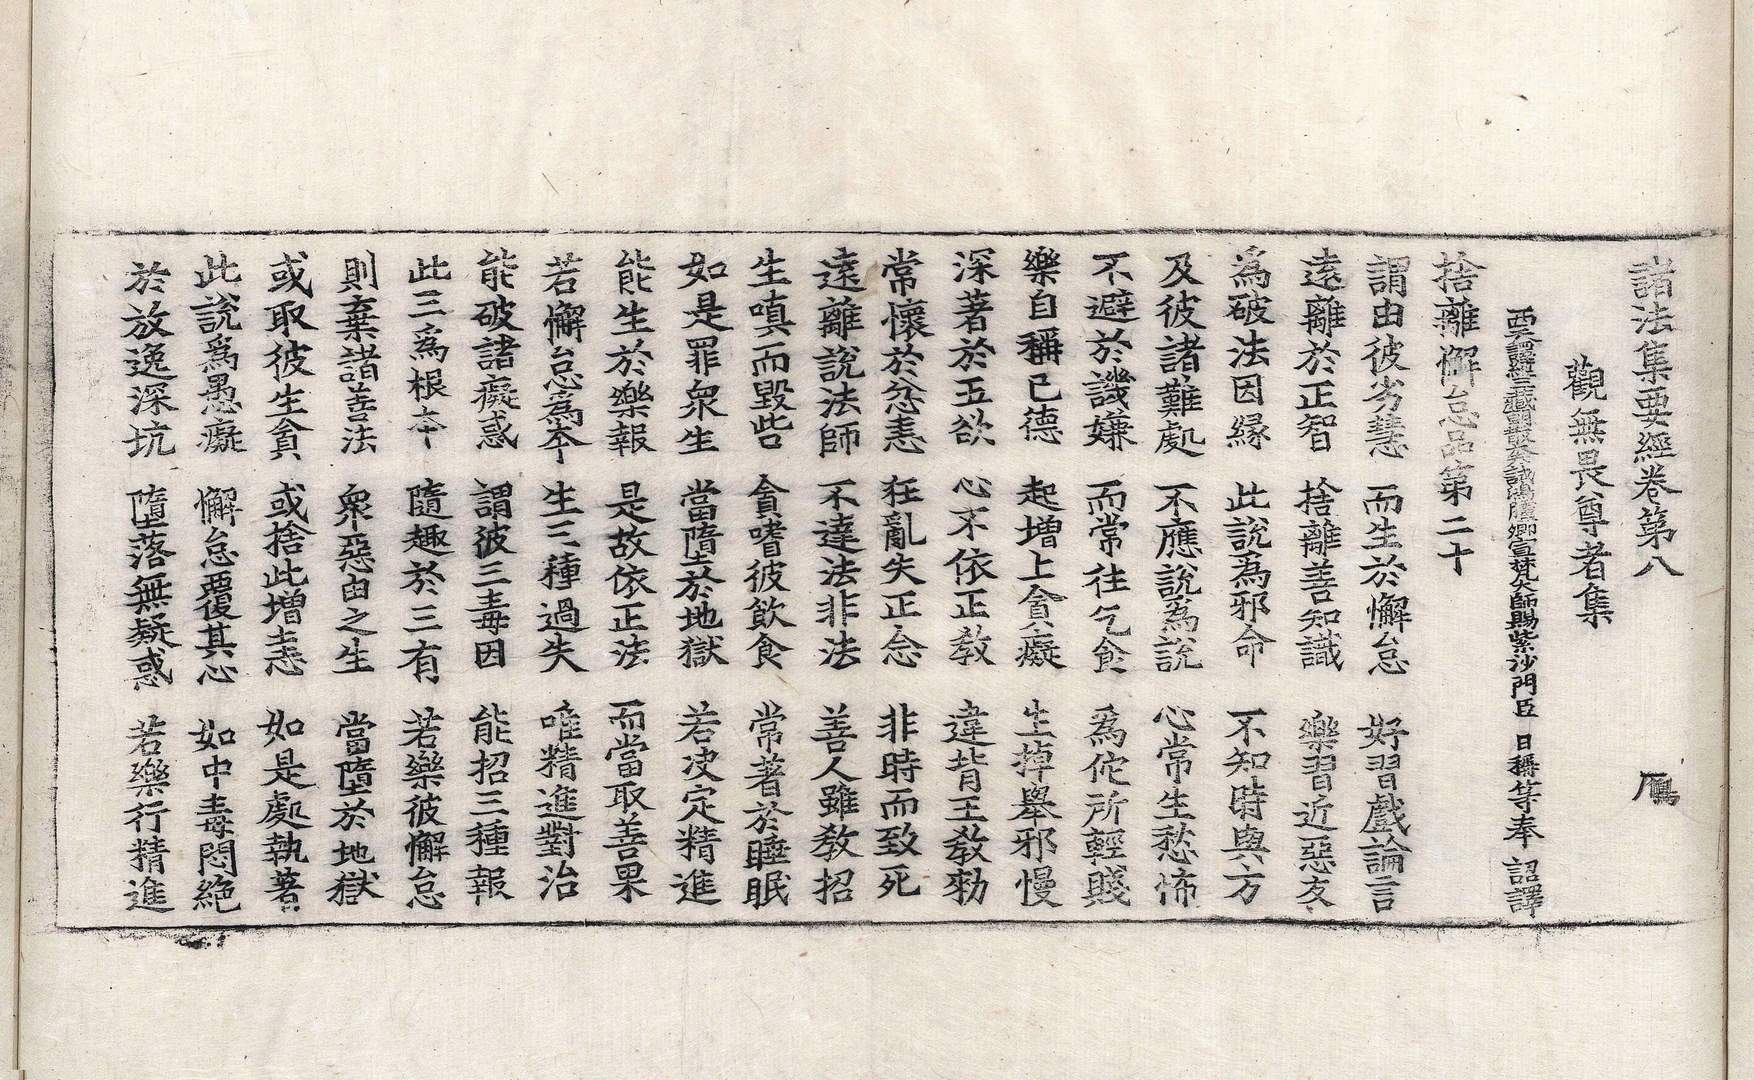 諸法集要經卷第八　鴈
觀無畏尊者集
西天譯經三藏朝散大夫試鴻臚卿宣梵大師賜紫沙門臣　日稱等奉　詔譯
捨離懈怠品第二十
謂由彼劣慧　而生於懈怠　好習戲論言
遠離於正智　捨離善知識　樂習近惡友
爲破法因緣　此説爲邪命　不知時與方
及彼諸難處　不應説爲説　心常生愁怖
不避於譏嫌　而常往乞食　爲佗所輕賤
樂自稱已德　起增上貪癡　生掉舉邪慢
深著於五欲　心不依正教　違背王教勑
常懷於忿恚　狂亂失正念　非時而致死
遠離説法師　不達法非法　善人雖教招
生嗔而毀呰　貪嗜彼飲食　常著於睡眠
如是罪衆生　當墮於地獄　若决定精進
能生於樂報　是故依正法　而當取善果
若懈怠爲本　生三種過失　唯精進對治
能破諸癡惑　謂彼三毒因　能招三種報
此三爲根本　隨趣於三有　若樂彼懈怠
則棄諸善法　衆惡由之生　當墮於地獄
或取彼生貪　或捨此增恚　如是處執著
此説爲愚癡　懈怠覆其心　如中毒悶絶
於放逸深坑　墮落無疑惑　若樂行精進